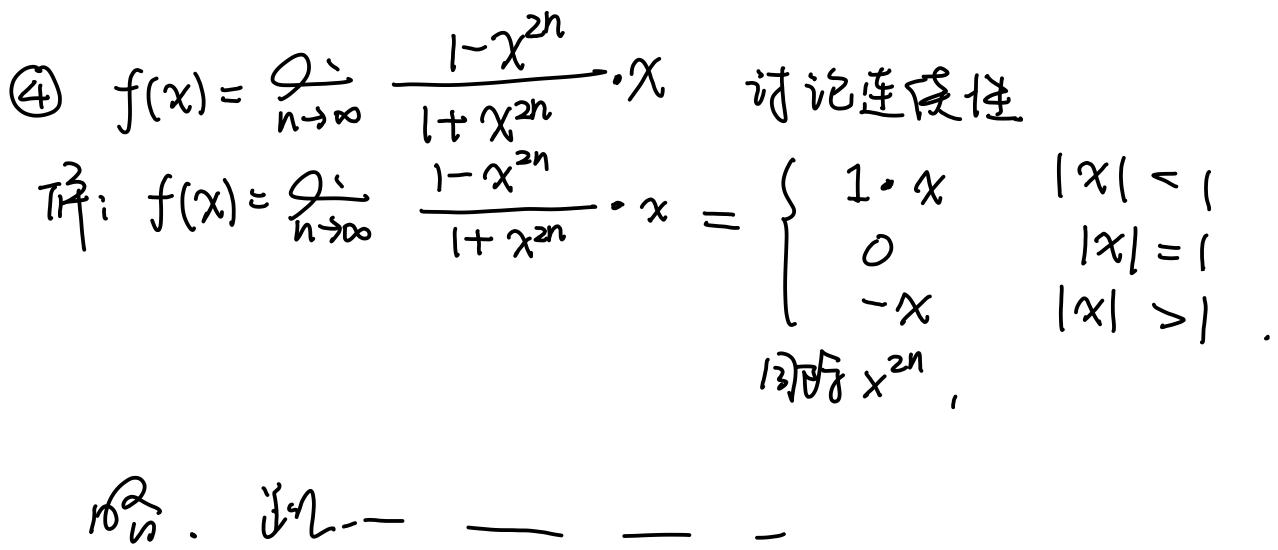 ④ f(x) = lim n→∞ (1-x^{2n})/(1+x^{2n}) · x 讨论连续性
解: f(x) = lim n→∞ (1-x^{2n})/(1+x^{2n}) · x = { 1·x |x| < 1
0 |x| = 1
-x |x| > 1 .
同除 x^{2n} ,